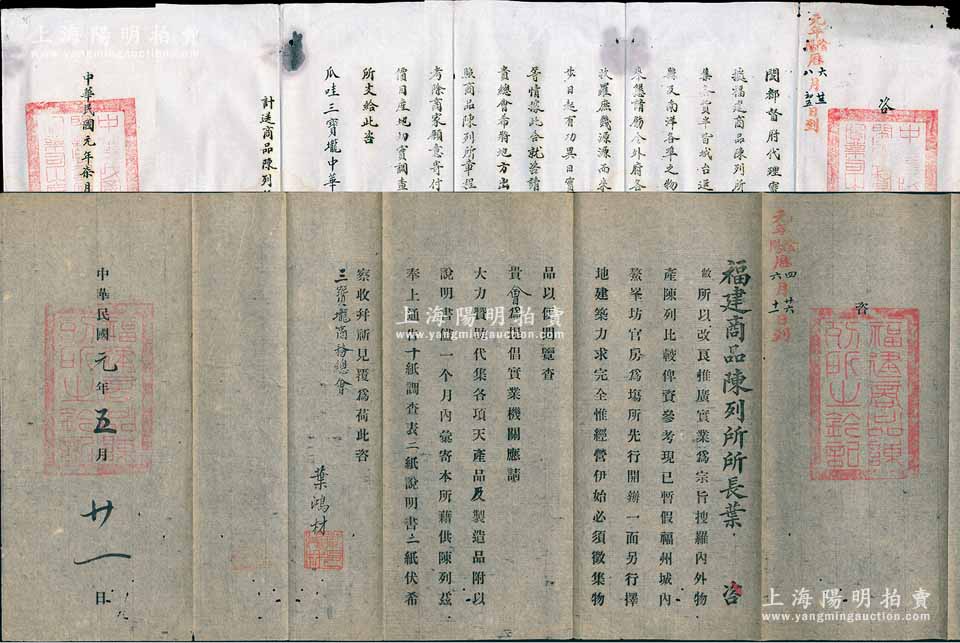 上海陽明拍賣
www.yangmingauction.com
元年陰陽曆六廿三八月初五日到
咨
閩都督府代理實
據福建商品陳列所
與及南洋各埠之物
來懇請勵令外府各
敦羅庶幾源源而來
步日起有功異日實
等情據此合就咨請
貴總會希將地方出
照商品陳列所章程
考除商家願意寄付
價目產地切實調查
所文給此咨
瓜哇三寶壠中華
計送商品陳列
中華民國元年
咨
元年陰陽曆四廿六六月十一日到
福建商品陳列所所長葉 咨
敝所以改良推廣實業爲宗旨搜羅內外物
產陳列比較俾資參考現已暫假福州城內
鰲峯坊官房爲塲所先行開辦一面另行擇
地建築力求完全惟經營伊始必須徵集物
品以便閱覽查
貴會爲提倡實業機關應請
大力贊助代集各項天產品及製造品附以
說明書借一个月內彙寄本所藉供陳列茲
奉上通告十紙調查表二紙說明書二紙伏希
察收幷祈見覆爲荷此咨
三寶壠商務總會
葉鴻材
中華民國元年五月廿一日
福建商品陳列所之鈐記
上海陽明拍賣
www.yangmingauction.com
上海陽明拍賣
www.yangmingauction.com